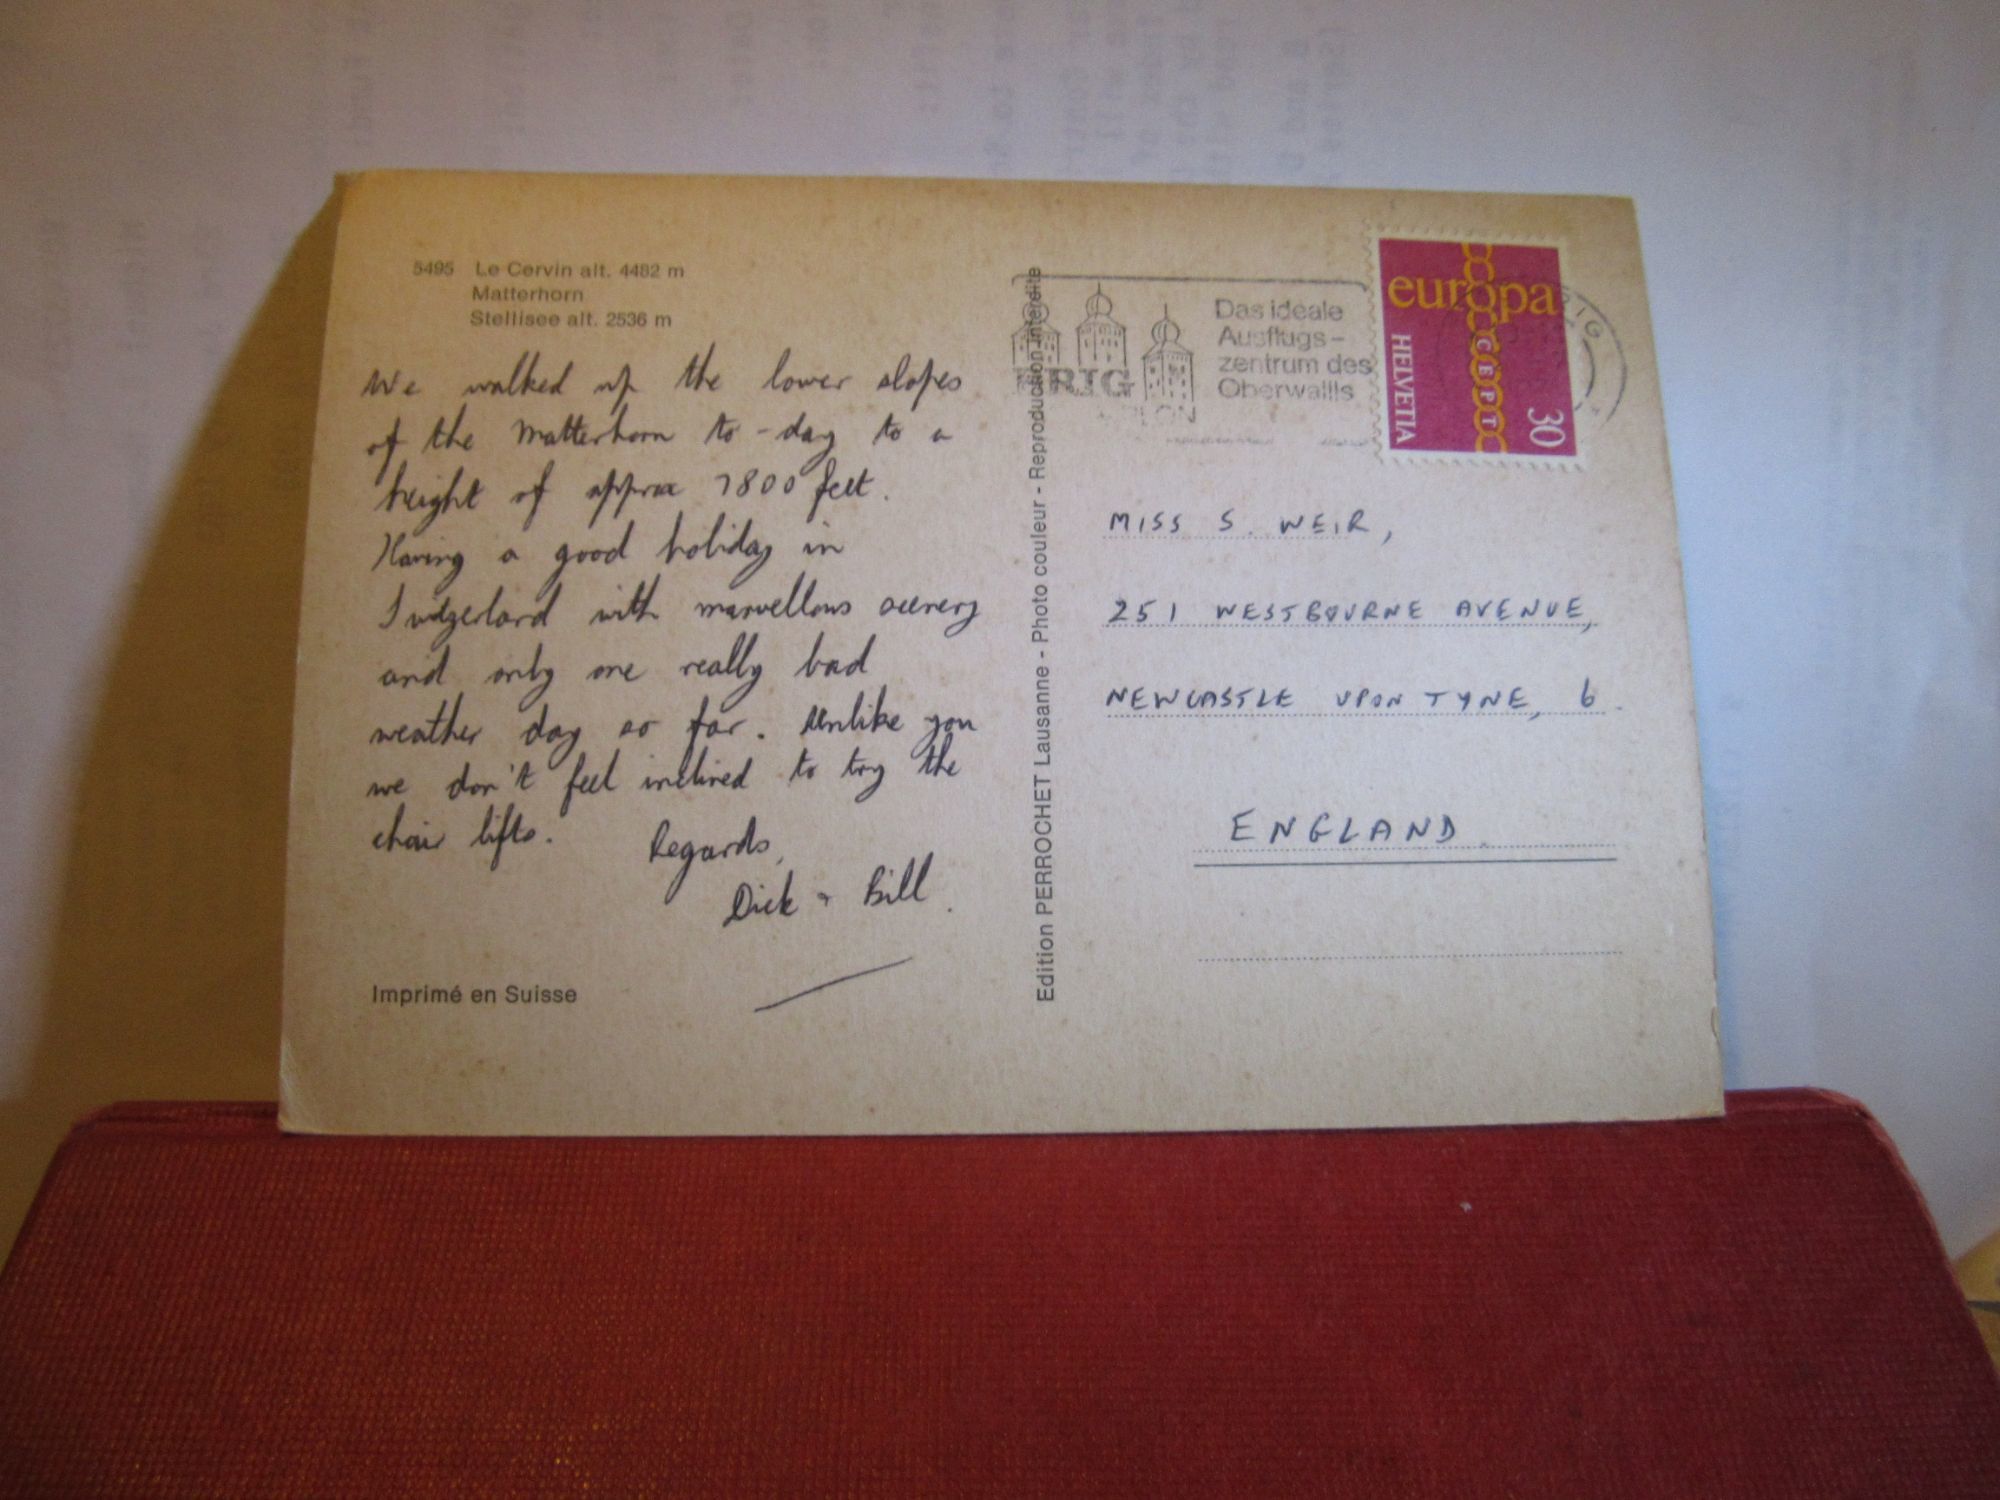 5495 Le Cervin alt. 4482 m
Matterhorn
Stellisee alt. 2536 m
We walked up the lower slopes
of the Matterhorn to-day to a
height of approx 7800 feet.
Having a good holiday in
Switzerland with marvellous scenery
and only one really bad
weather day so far. Unlike you
we don't feel inclined to try the
chair lifts.
Regards,
Dick + Bill.
Imprimé en Suisse
Edition PERROCHET Lausanne - Photo couleur - Reproduction interdite
BRIG
Das ideale
Ausflugs-
zentrum des
Oberwallis
europa
CEPT
HELVETIA
30
MISS S. WEIR,
251 WESTBOURNE AVENUE,
NEWCASTLE UPON TYNE, 6.
ENGLAND.